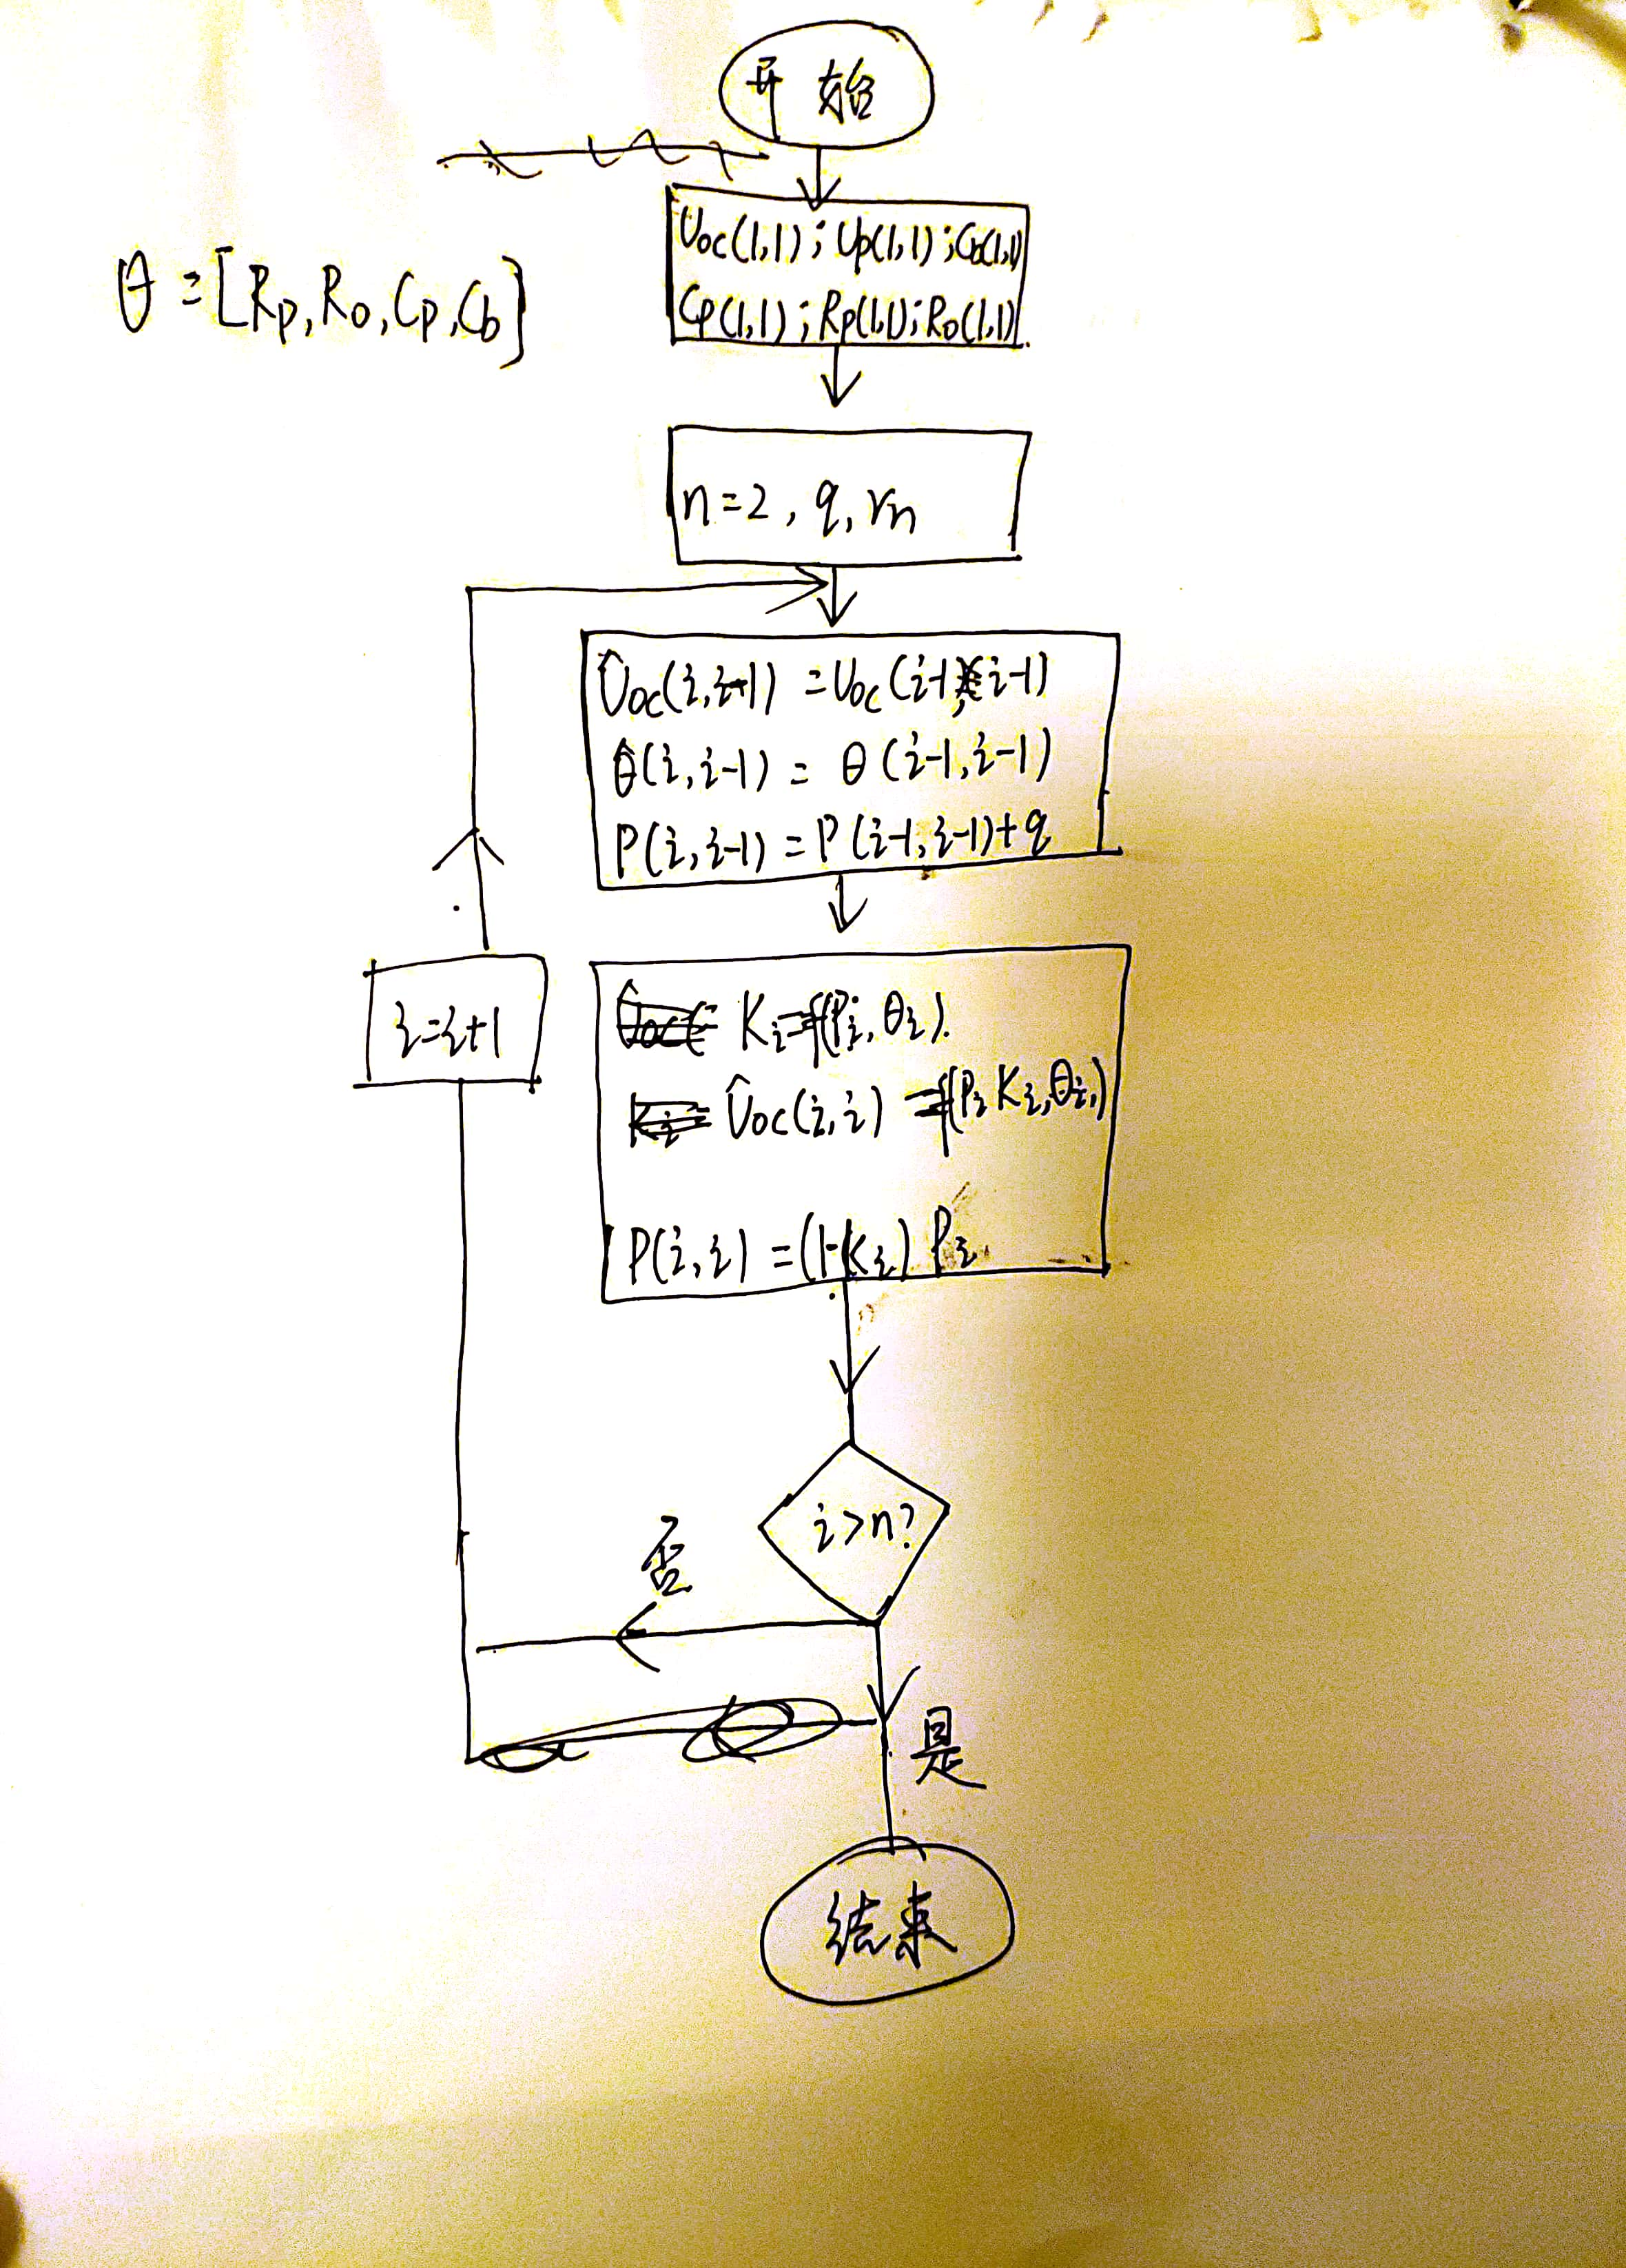 开始
Uoc(1,1); Up(1,1); Cb(1,1)
Cp(1,1); Rp(1,1); Ro(1,1)
θ=[Rp, Ro, Cp, Cb]
n=2, q, rn
Ûoc(i,i-1) = Uoc(i-1, i-1)
θ̂(i,i-1) = θ(i-1,i-1)
P(i,i-1) = P(i-1,i-1)+q
i=i+1
Ki=f(Pi,θi).
Ûoc(i,i) =f(Pi Ki,θi,)
P(i,i) =(1-Ki) Pi
i>n?
否
是
结束